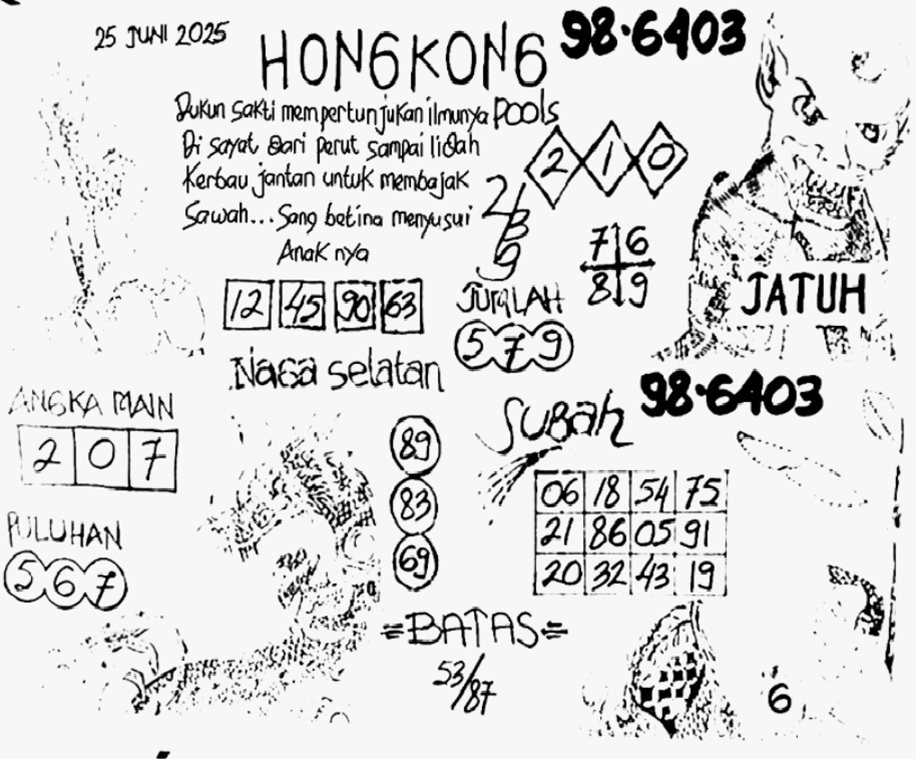 25 JUNI 2025
HONGKONG
98·6403
Dukun Sakti mempertunjukan ilmunya POOLS
Di sayat Dari perut sampai liDah
Kerbau jantan untuk membajak
Sawah... Sang betina menyusui
Anak nya
2 1 0
7 6
8 9
JATUH
12 45 90 63
JUMLAH
5 7 9
Naga selatan
98·6403
ANGKA MAIN
2 0 7
PULUHAN
5 6 7
89
83
69
SUBAH
06 18 54 75
21 86 05 91
20 32 43 19
=BATAS=
53/87
6